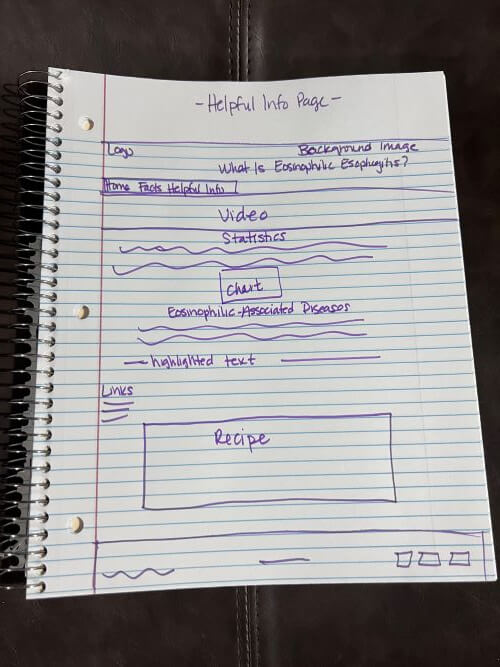 - Helpful Info Page -
Logo
Background Image
What Is Eosinophilic Esophagitis?
Home Facts Helpful Info
Video
Statistics
Chart
Eosinophilic-Associated Diseases
highlighted text
Links
Recipe